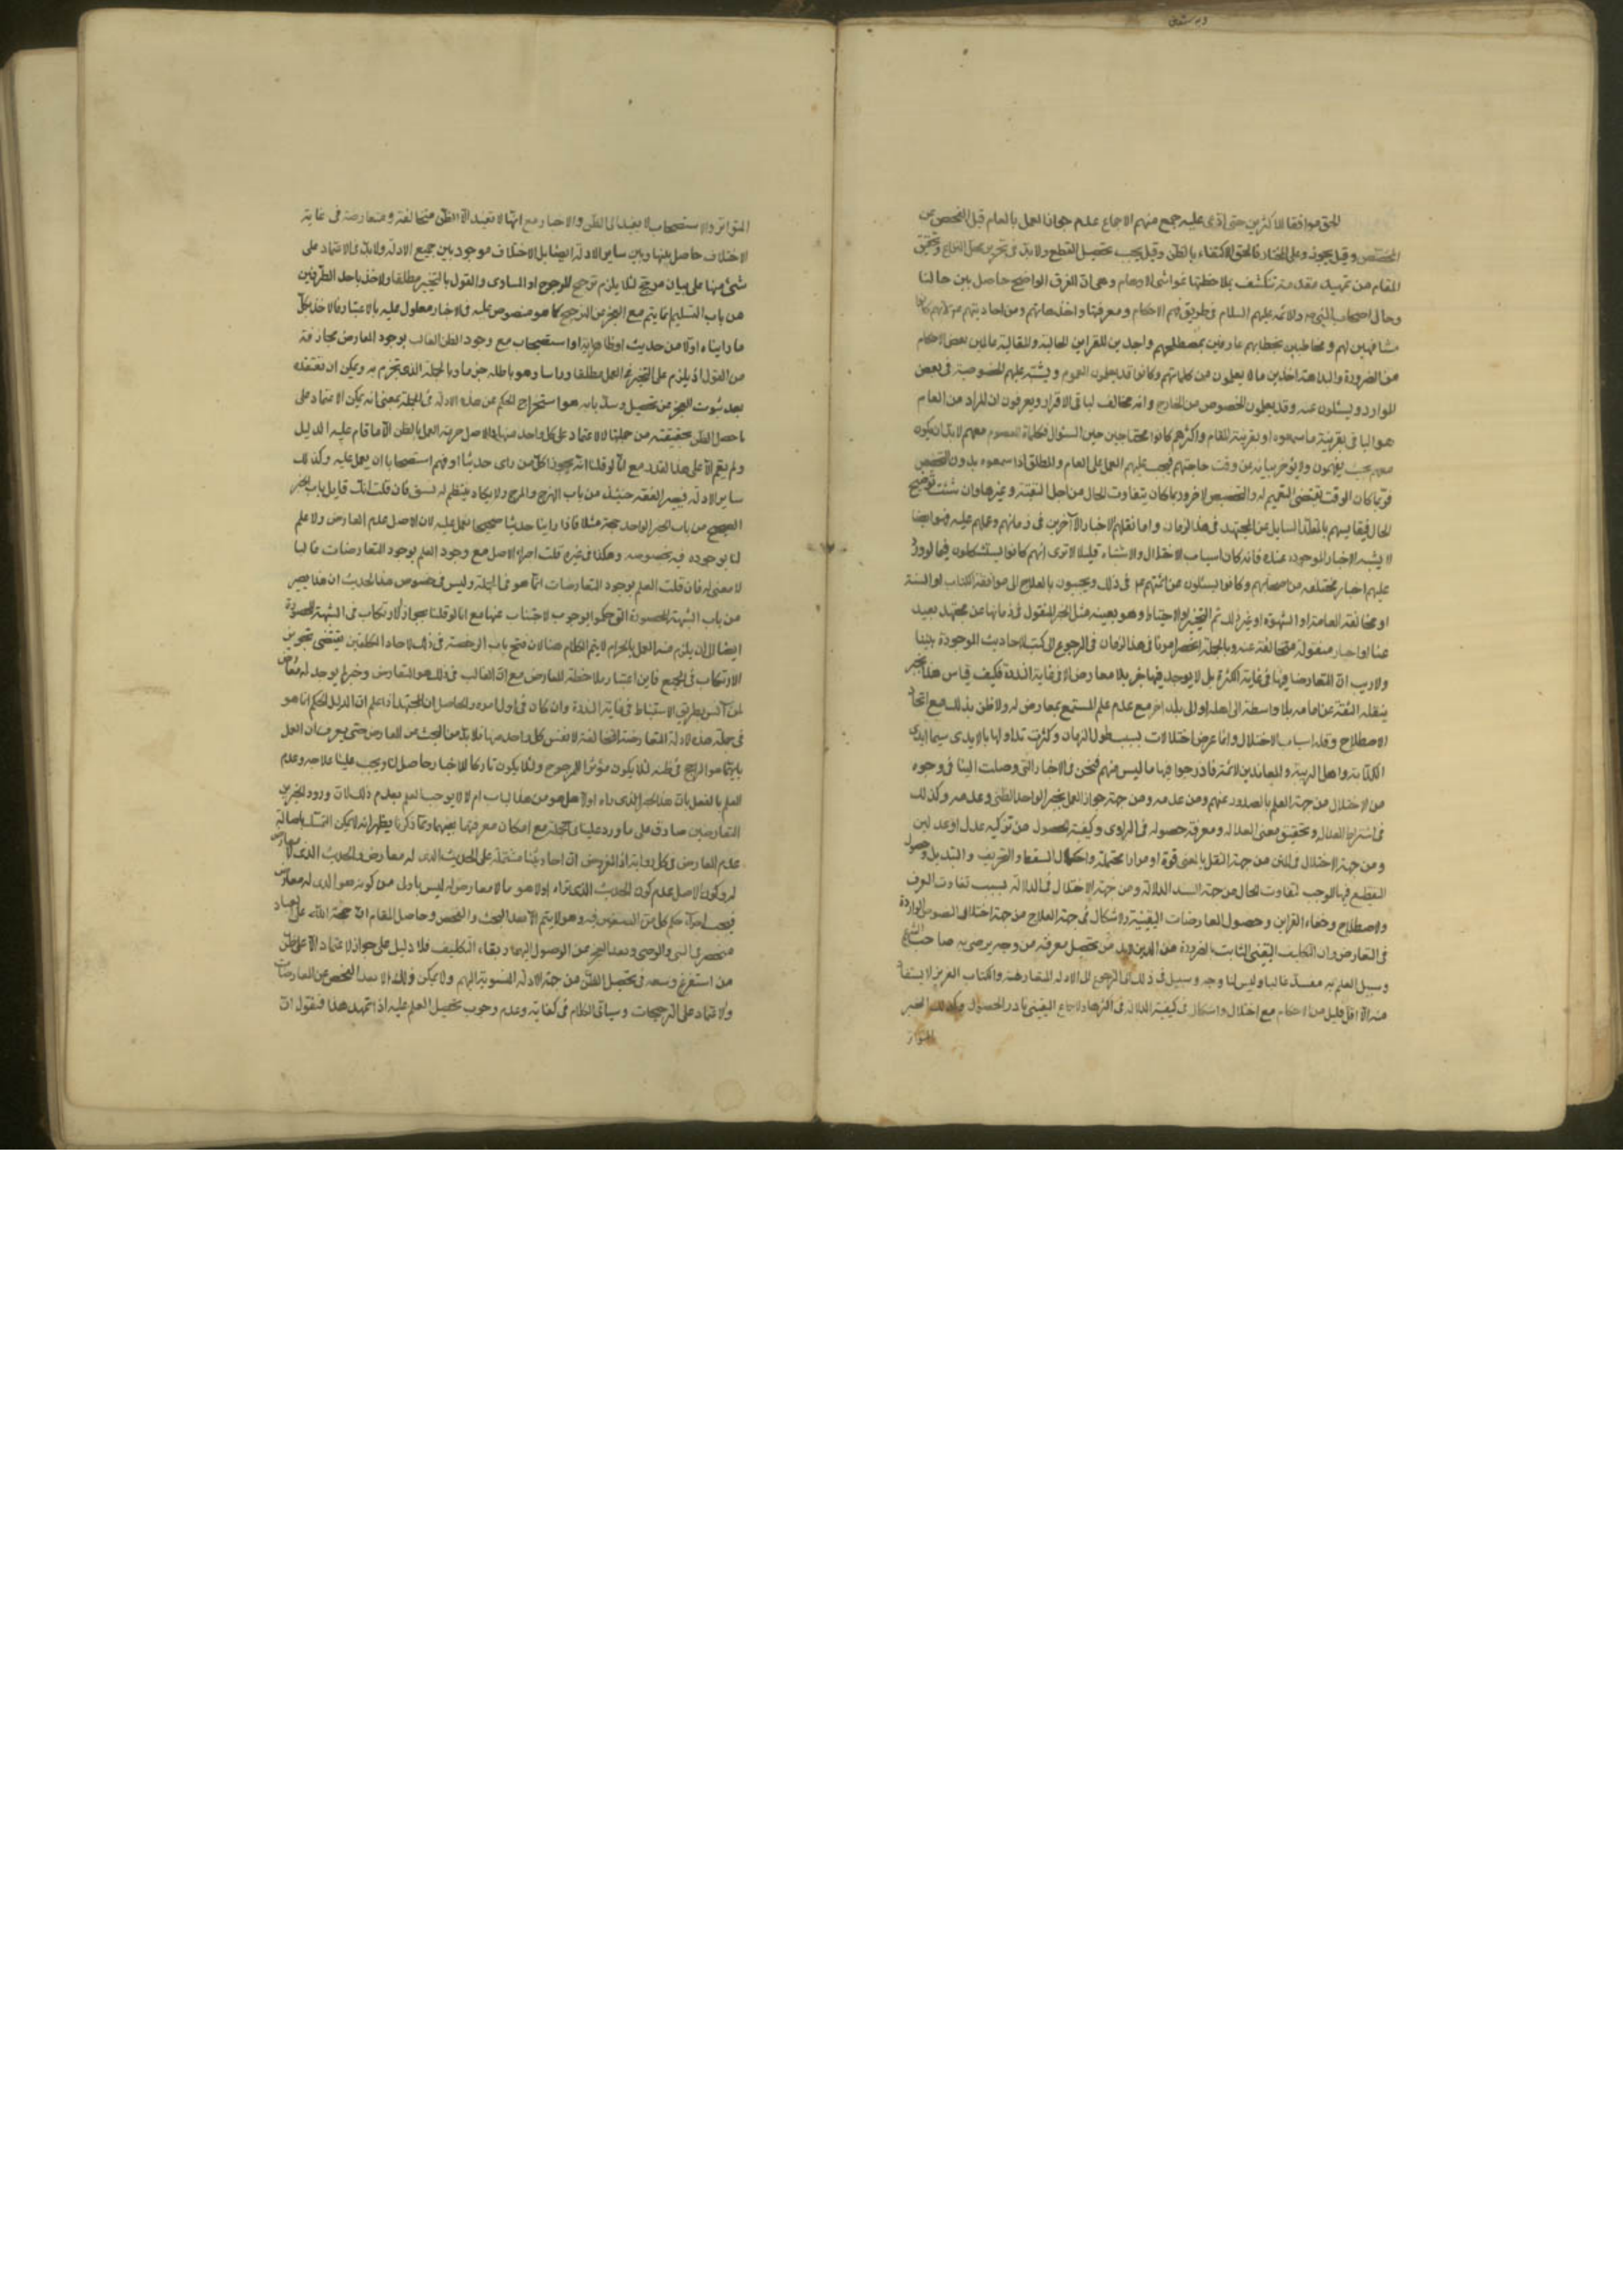 الحق موافقا للاكثرين حتى ادعى عليه جمع منهم الاجماع عدم جواز العمل بالعام قبل الفحص عن
المخصص وقيل يجوز وعلى المختار فالحق الاكتفاء بالظن وقيل يجب تحصيل القطع ولا بد في تحرير محل النزاع وتحقيق
المقام من تمهيد مقدمة تنكشف بملاحظتها غواشى الاوهام وهى ان الفرق الواضح حاصل بين حالنا
وحال اصحاب النبى ص والائمه عليهم السلام في طريق فهم الاحكام ومعرفتها واخذها منهم ومن احاديثهم
مشافهين لهم ومخاطبين بخطابهم عارفين بمصطلحهم واجدين للقراين الحالية والمقالية عالمين بعض الاحكام
من الضرورة والبداهة اخذين ما لا يعلمون من كلماتهم وكانوا قد يعلمون العموم ويشتبه عليهم الخصوصية في بعض
الموارد ويسئلون عنه وقد يعلمون الخصوص من الخارج وانه مخالف لباقى الافراد ويعرفون ان المراد من العام
هو الباقى بقرينة ما سمعوه او بقرينة المقام واكثرهم كانوا محتاجين حين السئوال فكلام المعصوم معهم لا بد ان يكون
معهم بحيث يفهمون ولا يؤخر بيانه من وقت حاجتهم فيجب عليهم العمل على العام والمطلق اذا سمعوه بدون التخصيص
فربما كان الوقت يقتضى التعميم له والتخصيص لاخر وربما كان يتفاوت الحال من اجل التقية وغيرها وان شئت توضيح
الحال فقايسهم بالمقلد السايل عن المجتهد في هذا الزمان واما نقلهم الاخبار لآخرين في زمانهم وعملهم عليه فهو ايضا
لا يشبه الاخبار الموجودة عندنا فانه كان اسباب الاختلال والاشتباه قليلا الا ترى انهم كانوا يستشكلون فيما لو ورد
عليهم اخبار مختلفه من اصحابهم وكانوا يسئلون عن ائمتهم ع في ذلك ويجيبون بالعلاج الى موافقة الكتاب او السنة
او مخالفة العامة او الشهرة او غير ذلك ثم التخيير او الاحتياط وهو بعينه مثل الخبر المنقول في زماننا عن مجتهد بعيد
عنا او اخبار منقولة متخالفة عنه وبالجملة انحصر امرنا في هذا الزمان في الرجوع الى كتب الاحاديث الموجودة بيننا
ولا ريب ان المتعارضات فيها في غاية الكثرة بل لا يوجد فيها خبر بلا معارض الا في غاية الندرة فكيف يقاس هذا بخبر
ينقله الثقة عن امامه بلا واسطة الى اهله او الى بلد اخر مع عدم علم المستمع بمعارض له ولا ظن بذلك مع اتحاد
الاصطلاح وقلة اسباب الاختلال وانما عرض اختلالات بسبب طول الزمان وكثرت تداولها بالايدى سيما ايدى
الكذابة واهل الريبة والمعاندين للائمة فادرجوا فيها ما ليس منهم فنحن في الاخبار التى وصلت الينا في وجوه
من الاختلال من جهة العلم بالصدور عنهم ومن عدمه ومن جهة جواز العمل بخبر الواحد الظنى وعدمه وكذلك
في اشتراط العدالة وتحقيق معنى العدالة ومعرفة حصوله في الراوى وكيفية الحصول من تزكية عدل او عدلين
ومن جهة الاختلال في المتن من جهة النقل بالمعنى واحتمال السقط والتحريف والتبديل وحصول
التقطيع فيها الموجب لتفاوت الحال من جهة السند الدلالة ومن جهة الاختلال في الدلالة بسبب تفاوت العرف
والاصطلاح وخفاء القراين وحصول المعارضات اليقينية والاشكال في جهة العلاج من جهة اختلاف النصوص الواردة
في التعارض وان التكليف اليقينى الثابت بالضرورة من الدين لا بد من تحصيل معرفته من وجه يرضى به صاحب الشرع
وسبيل العلم به منسد غالبا وليس لنا وجه وسبيل في ذلك الا الرجوع الى الادلة المتعارضة والكتاب العزيز لا يستفاد
منه الا اقل قليل من الاحكام مع اختلال واشكال في كيفية الدلالة في اكثرها والاجماع اليقينى نادر الحصول وكذلك الخبر
المتواتر
المتواتر والاستصحاب لا يفيد الا الظن والاخبار مع انها لا تفيد الا الظن متخالفة ومتعارضة في غاية
الاختلاف حاصل بينها وبين ساير الادلة ايضا بل الاختلاف موجود بين جميع الادلة ولا بد في الاعتماد على
شئ منها على بيان مرجح لئلا يلزم ترجيح المرجوح او المساوى والقول بالتخيير مطلقا والاخذ باحد الطرفين
من باب التسليم انما يتم مع العجز من الترجيح كما هو منصوص عليه في الاخبار معلول عليه بالاعتبار فالاخذ بكل
ما رايناه اولا من حديث او ظاهر اية او استصحاب مع وجود الظن الغالب بوجود المعارض مجازفة
من القول اذ يلزم على التخيير في العمل مطلقا وراسا وهو باطل جزما وبالجملة الذى نجزم به ويمكن ان نعتقده
بعد ثبوت العجز عن تحصيل وسد بابه هو استخراج الحكم عن هذه الادلة في الجملة بمعنى انه يمكن الاعتماد على
ما حصل الظن بحقيقته من جملتها لا الاعتماد على كل واحد منها اذ الاصل حرمة العمل بالظن الا ما قام عليه الدليل
ولم يقم الا على هذا القدر مع انا لو قلنا انه يجوز لكل من راى حديثا او فهم استصحابا ان يعمل عليه وكذلك
ساير الادلة فيصير الفقه حينئذ من باب الهرج والمرج ولا يكاد ينتظم له نسق فان قلت انك قايل بان خبر
الصحيح من باب الخبر الواحد حجة مثلا فاذا راينا حديثا صحيحا نعمل عليه لان الاصل عدم المعارض ولا علم
لنا بوجوده فيه بخصوصه وهكذا في غيره قلت اجراء الاصل مع وجود العلم بوجود التعارضات غالبا
لا معنى له فان قلت العلم بوجود المتعارضات انما هو في الجملة وليس في خصوص هذا الحديث ان هذا يصير
من باب الشبهة المحصورة التى حكموا بوجوب الاجتناب عنها مع انا لو قلنا بجواز الارتكاب في الشبهة المحصورة
ايضا الا ان يلزم منه العمل بالحرام لا يتم الكلام هنا لان فتح باب الرخصة في ذلك لاحاد المكلفين يقتضى تجويز
الارتكاب في الجميع فاين اعتبار ملاحظة المعارض مع ان الغالب في ذلك هو التعارض وخبر لا يوجد له معارض
لمن آنس بطريق الاستنباط في غاية الندرة وان كان في اول امره والحاصل ان المجتهد اذا علم ان الدليل للحكم انما هو
في جملة هذه الادلة المتعارضة المتخالفة لا نفس كل واحد منها فلا بد من البحث عن المعارض حتى يعرف ان العمل
بايهما هو الراجح في ظنه لئلا يكون مؤثرا للمرجوح ولئلا يكون تاركا للاخبار حاصل لنا ويجب علينا علاجه وعدم
العلم بالفعل بان هذا الخبر الذى راه اولا هل هو من هذا الباب ام لا لا يوجب العلم بعدم ذلك لان ورود الخبرين
المتعارضين صادق على ما ورد علينا في الجملة مع امكان معرفتها بعينها ومما ذكرنا يظهر انه لا يمكن التمسك باصالة
عدم المعارض في كل رواية اذ المفروض ان احاديثنا مشتملة على الحديث الذى له معارض والحديث الذى لا معارض
له وكون الاصل عدم كون الحديث الذى نراه اولا هو ما لا معارض له ليس باولى من كونه هو الذى له معارض
فيجب اجراء حكم كل من الصنفين فيه وهو لا يتم الا بعد البحث والفحص وحاصل المقام ان حجة الله على العباد
منحصر في النبى والوصى وبعد العجز من الوصول اليهما وبقاء التكليف فلا دليل على جواز الاعتماد الا على ظن
من استفرغ وسعه في تحصيل الظن من جهة الادلة المنسوبة اليهم ولا يمكن ذلك الا بعد الفحص عن المعارضات
والاعتماد على الترجيحات وسياتى الكلام في كفايته وعدم وجوب تحصيل العلم عليه اذا تمهد هذا فنقول ان